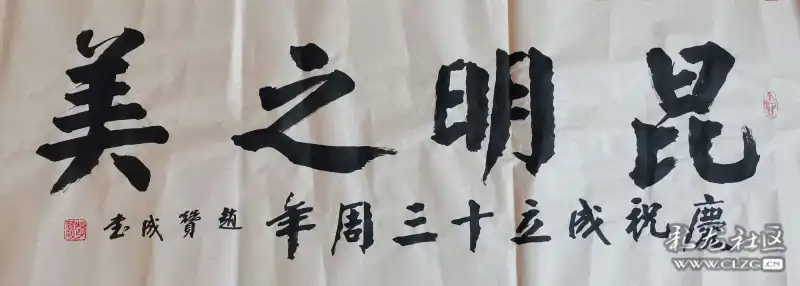 昆明之美
慶祝成立十三周年
趙贊成书
社区
WWW.CLZG.CN